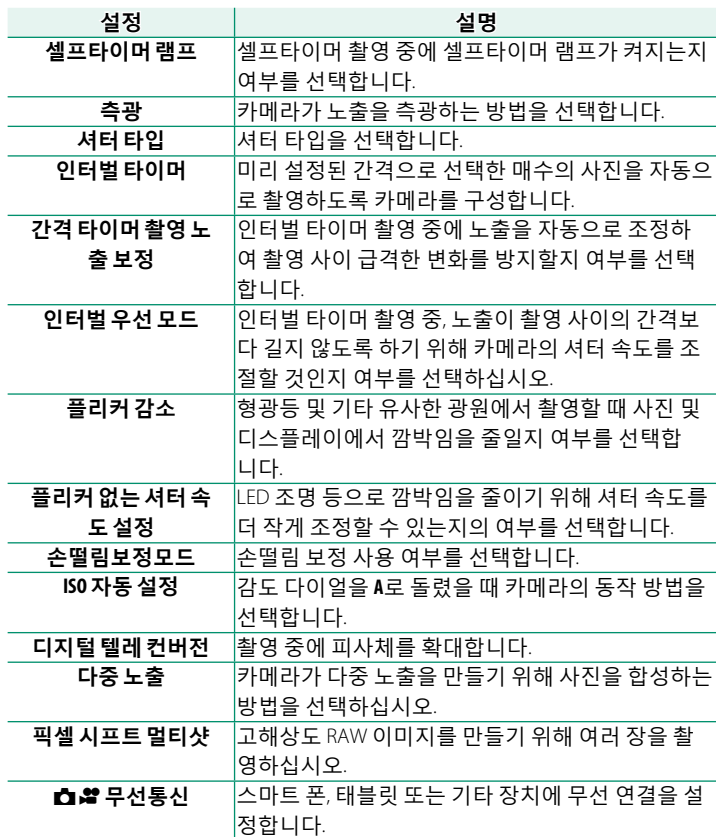 설정 설명
셀프타이머 램프 셀프타이머 촬영 중에 셀프타이머 램프가 켜지는지
여부를 선택합니다.
측광 카메라가 노출을 측광하는 방법을 선택합니다.
셔터 타입 셔터 타입을 선택합니다.
인터벌 타이머 미리 설정된 간격으로 선택한 매수의 사진을 자동으
로 촬영하도록 카메라를 구성합니다.
간격 타이머 촬영 노 인터벌 타이머 촬영 중에 노출을 자동으로 조정하
출 보정 여 촬영 사이 급격한 변화를 방지할지 여부를 선택
합니다.
인터벌 우선 모드 인터벌 타이머 촬영 중, 노출이 촬영 사이의 간격보
다 길지 않도록 하기 위해 카메라의 셔터 속도를 조
절할 것인지 여부를 선택하십시오.
플리커 감소 형광등 및 기타 유사한 광원에서 촬영할 때 사진 및
디스플레이에서 깜박임을 줄일지 여부를 선택합
니다.
플리커 없는 셔터 속 LED 조명 등으로 깜박임을 줄이기 위해 셔터 속도를
도 설정 더 작게 조정할 수 있는지의 여부를 선택합니다.
손떨림보정모드 손떨림 보정 사용 여부를 선택합니다.
ISO 자동 설정 감도 다이얼을 A로 돌렸을 때 카메라의 동작 방법을
선택합니다.
디지털 텔레 컨버전 촬영 중에 피사체를 확대합니다.
다중 노출 카메라가 다중 노출을 만들기 위해 사진을 합성하는
방법을 선택하십시오.
픽셀 시프트 멀티샷 고해상도 RAW 이미지를 만들기 위해 여러 장을 촬
영하십시오.
무선통신 스마트 폰, 태블릿 또는 기타 장치에 무선 연결을 설
정합니다.